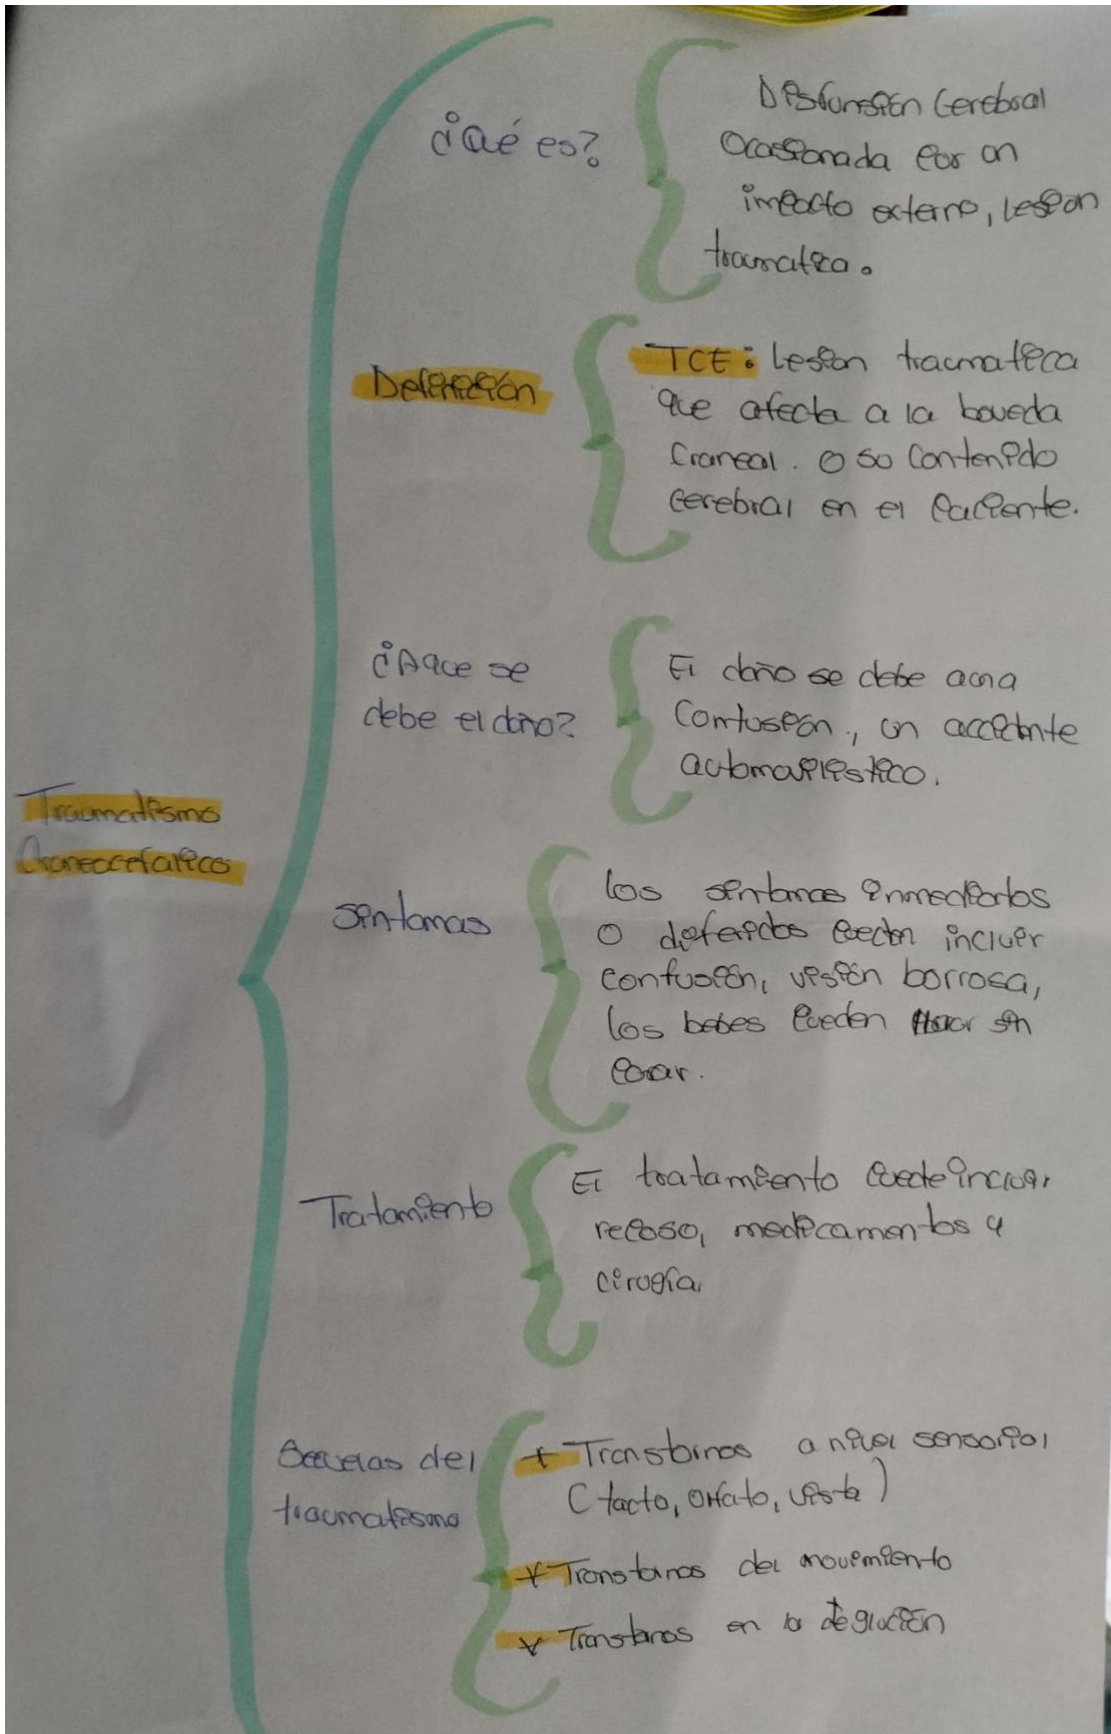 ¿Qué es?
Disfunsión Cerebral
Ocasionada por un
impacto externo, Lesion
traumatica.
Definición
TCE: Lesion traumatica
que afecta a la boveda
Craneal. o su Contenido
cerebral en el Paciente.
¿Aque se
debe el daño?
El daño se debe auna
Contusión, un accidente
automovilistico.
Traumatismo
Craneocefalico
Sintomas
Los sintomas inmediatos
o diferidos pueden incluir
confusión, visión borrosa,
los bebes pueden llorar sin
parar.
Tratamiento
El tratamiento puede incluir
reposo, medicamentos y
cirugía
Secuelas del
traumatismo
+ Transtornos a nivel sensorial
(tacto, olfato, vista)
+ Transtornos del movimiento
+ Transtornos en la deglución